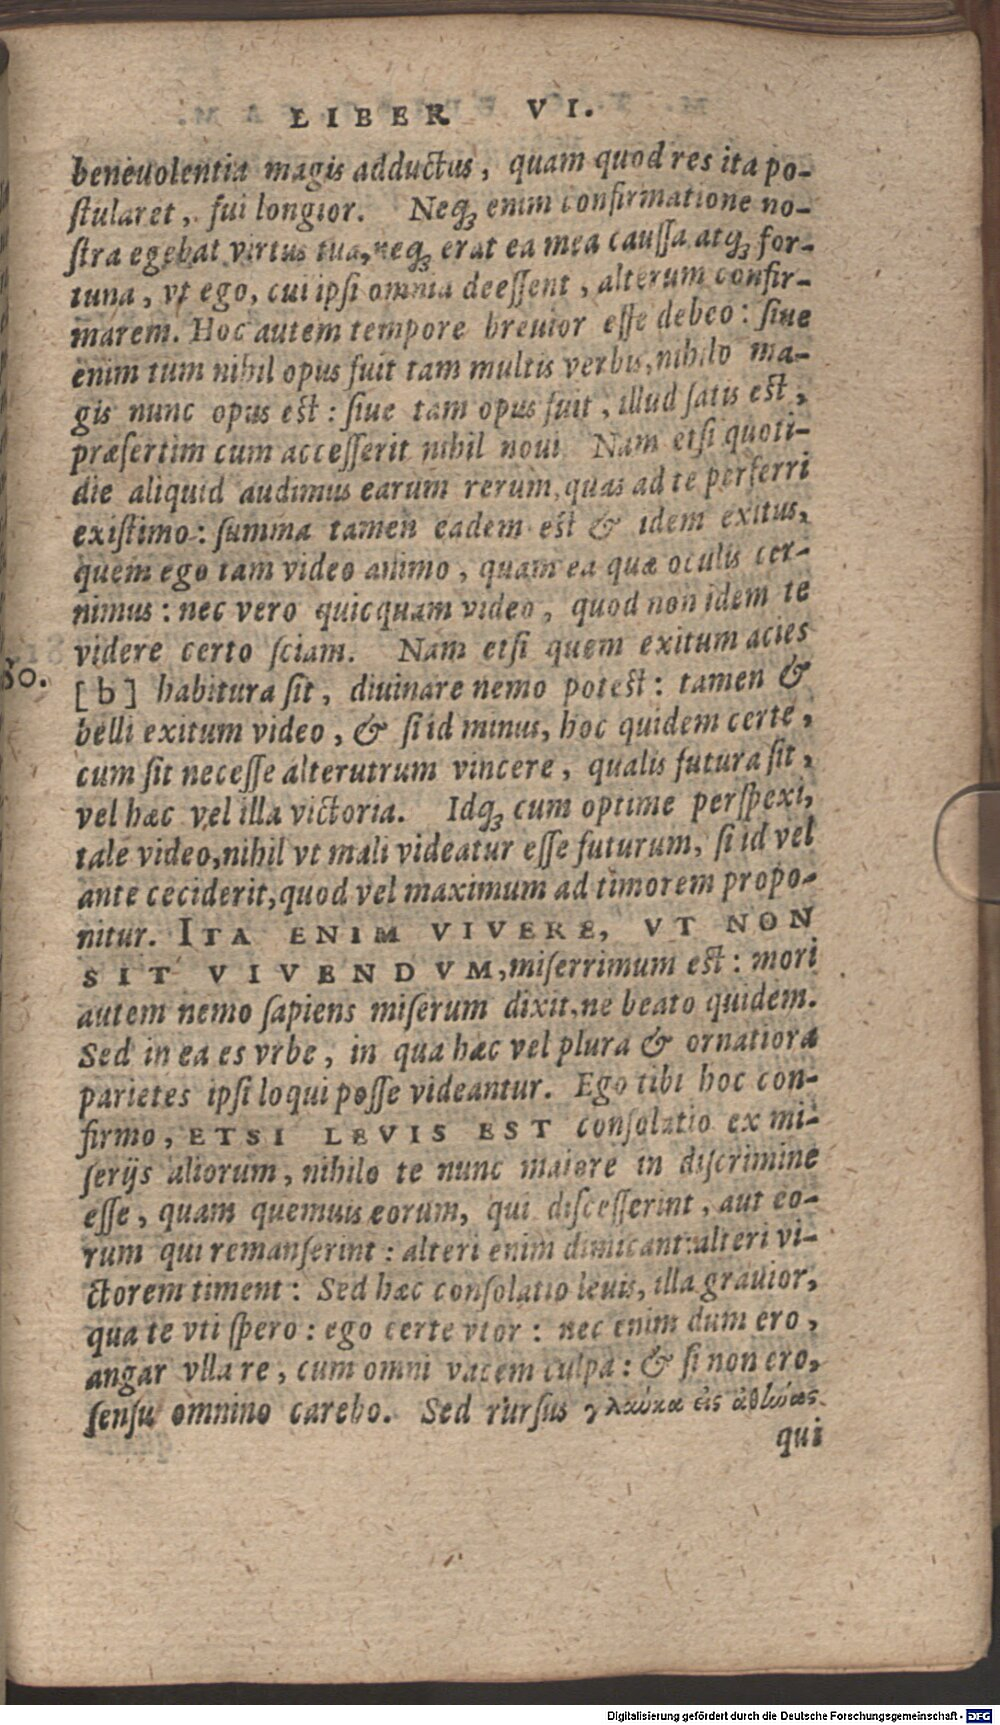 LIBER VI.
beneuolentia magis adductus, quam quod res ita po-
ſtularet, fui longior. Neqꝫ enim confirmatione no-
ſtra egebat virtus tua, neqꝫ erat ea mea cauſſa atqꝫ for-
tuna, vt ego, cui ipſi omnia deeſſent, alterum confir-
marem. Hoc autem tempore breuior eſſe debeo: ſiue
enim tum nihil opus fuit tam multis verbis, nihilo ma-
gis nunc opus eſt: ſiue tam opus fuit, illud ſatis eſt,
præſertim cum acceſſerit nihil noui. Nam etſi quoti-
die aliquid audimus earum rerum, quas ad te perferri
exiſtimo: ſumma tamen eadem eſt & idem exitus,
quem ego tam video animo, quam ea quæ oculis cer-
nimus: nec vero quicquam video, quod non idem te
videre certo ſciam. Nam etſi quem exitum acies
80.
[b] habitura ſit, diuinare nemo poteſt: tamen &
belli exitum video, & ſi id minus, hoc quidem certe,
cum ſit neceſſe alterutrum vincere, qualis futura ſit,
vel hæc vel illa victoria. Idqꝫ cum optime perſpexi,
tale video, nihil vt mali videatur eſſe futurum, ſi id vel
ante ceciderit, quod vel maximum ad timorem propo-
nitur. ITA ENIM VIVERE, VT NON
SIT VIVENDVM, miſerrimum eſt: mori
autem nemo ſapiens miſerum dixit, ne beato quidem.
Sed in ea es vrbe, in qua hæc vel plura & ornatiora
parietes ipſi loqui poſſe videantur. Ego tibi hoc con-
firmo, ETSI LEVIS EST conſolatio ex mi-
ſerijs aliorum, nihilo te nunc maiore in diſcrimine
eſſe, quam quemuis eorum, qui diſceſſerint, aut eo-
rum qui remanſerint: alteri enim dimicant: alteri vi-
ctorem timent: Sed hæc conſolatio leuis, illa grauior,
qua te vti ſpero: ego certe vtor: nec enim dum ero,
angar vlla re, cum omni vacem culpa: & ſi non ero,
ſenſu omnino carebo. Sed rurſus γλαῦκα εἰς ἀθήνας
qui
Digitalisierung gefördert durch die Deutsche Forschungsgemeinschaft - DFG